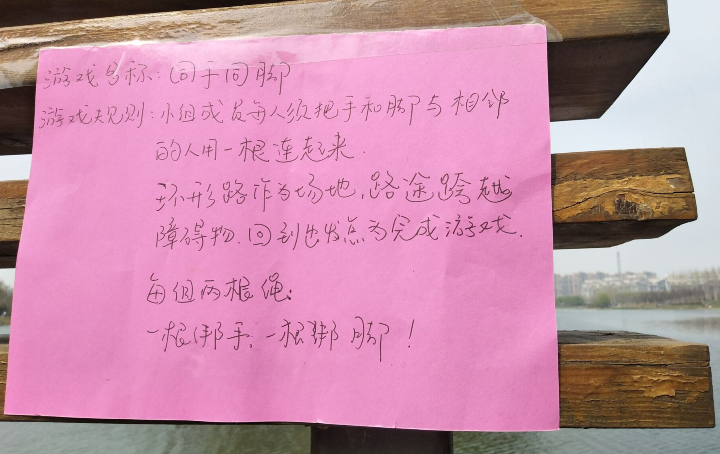 游戏名称：同手同脚
游戏规则：小组成员每人须把手和脚与相邻
的人用一根连起来.
环形路作为场地,路途跨越
障碍物.回到出发点为完成游戏.
每组两根绳：
一根绑手、一根绑脚！